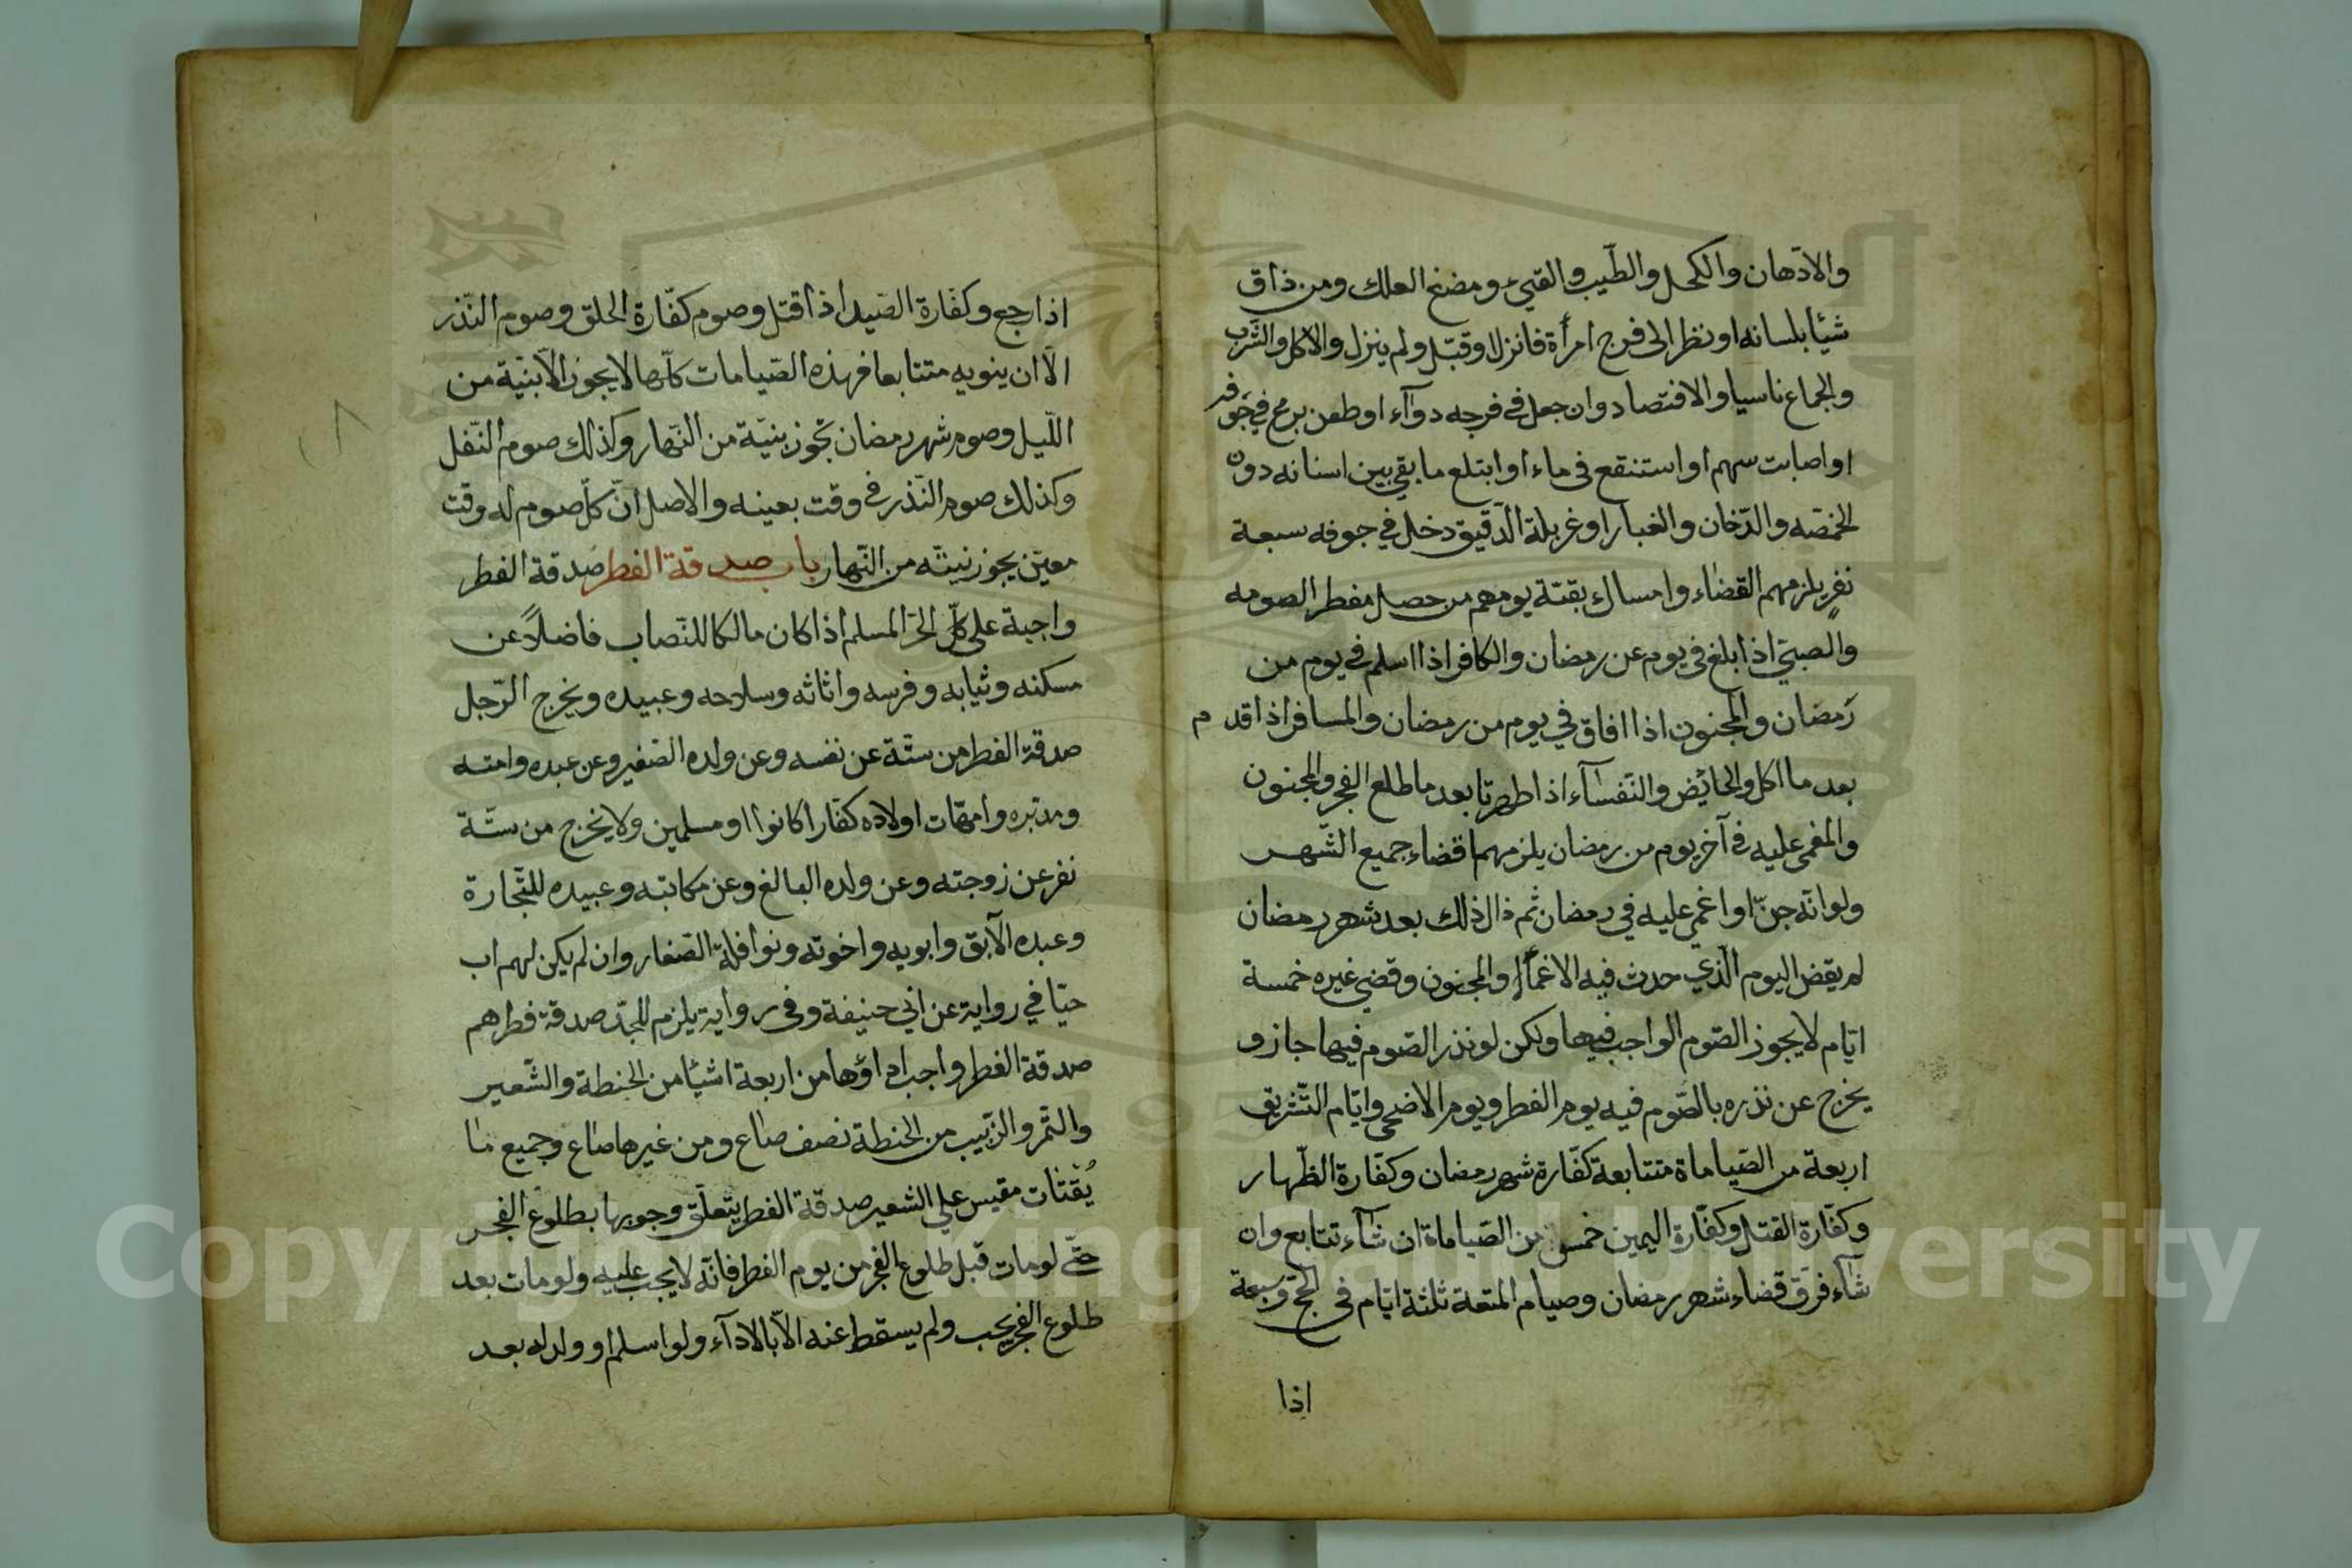 والادهان والكحل والطّيب والقيء ومضغ العلك ومن ذاق
شيئا بلسانه او نظر الى فرج امرأة فانزل او قبّل ولم ينزل والاكل والشّرب
والجماع ناسيا والافتصاد وان جعل في فرجه دوآء او طعن برمح في جوفه
او اصابت سهم او استنقع في ماء او ابتلع ما بقي بين اسنانه دون
الحمّصه والدّخان والغبار او غربلة الدّقيق دخل في جوفه سبعة
نفر يلزمهم القضاء وامساك بقيّة يومهم من حصل مفطر الصومه
والصبيّ اذا بلغ في يوم عن رمضان والكافر اذا اسلم في يوم من
رمضان والمجنون اذا افاق في يوم من رمضان والمسافر اذا قدم
بعد ما اكل والحائض والنّفسآء اذا طهرتا بعد ما طلع الفجر والمجنون
والمغمى عليه في آخر يوم من رمضان يلزمهما قضاء جميع الشّهر
ولو انّه جنّ او اغمي عليه في رمضان ثم ذال ذلك بعد شهر رمضان
لم يقض اليوم الّذي حدث فيه الاغمآء والمجنون وقضي غيره خمسة
ايّام لا يجوز الصّوم الواجب فيها ولكن لو نذر الصّوم فيها جاز و
يخرج عن نذره بالصّوم فيه يوم الفطر ويوم الاضحى وايّام التّشريق
اربعة من الصّياماة متتابعة كفّارة شهر رمضان وكفّارة الظّهار
وكفّارة القتل وكفّارة اليمين خمس من الصّياماة ان شآء تتابع وان
شآء فرّق قضاء شهر رمضان وصيام المتعة ثلثة ايّام في الحجّ وسبعة
اذا
اذا رجع وكفّارة الصّيد اذا قتل وصوم كفّارة الحلق وصوم النّذر
الّا ان ينويه متتابعا فهذه الصّيامات كلّها لا يجوز الّا بنيّة من
اللّيل وصوم شهر رمضان تجوز بنيّة من النّهار وكذلك صوم النّفل
وكذلك صوم النّذر في وقت بعينه والاصل انّ كلّ صوم له وقت
معيّن يجوز نيّته من النّهار باب صدقة الفطر صدقة الفطر
واجبة على كلّ الحرّ المسلم اذا كان مالكا للنّصاب فاضلاً عن
مسكنه وثيابه وفرسه واثاثه وسلاحه وعبيده ويخرج الرّجل
صدقة الفطر من ستّة عن نفسه وعن ولده الصّغير وعن عبده وامته
ومدبّره وامّهات اولاده كفّارا كانوا او مسلمين ولا يخرج من ستّة
نفر عن زوجته وعن ولده البالغ وعن مكاتبه وعبيده للتّجارة
وعبده الآبق وابويه واخوته ونوافلة الصّغار وان لم يكن لهم اب
حيّا في رواية عن ابي حنيفة وفي رواية يلزم للجدّ صدقة فطرهم
صدقة الفطر واجب اداؤها من اربعة اشيئا من الحنطة والشّعير
والتّمر والزّبيب من الحنطة نصف صاع ومن غيرها صاع وجميع ما
يُقتات مقيس علي الشعير صدقة الفطر يتعلّق وجوبها بطلوع الفجر
حتّى لو مات قبل طلوع الفجر من يوم الفطر فانّه لا يجب عليه ولو مات بعد
طلوع الفجر يجب ولم يسقط عنه الّا بالادآء ولو اسلم او ولد له بعد
Copyright © King Saud University